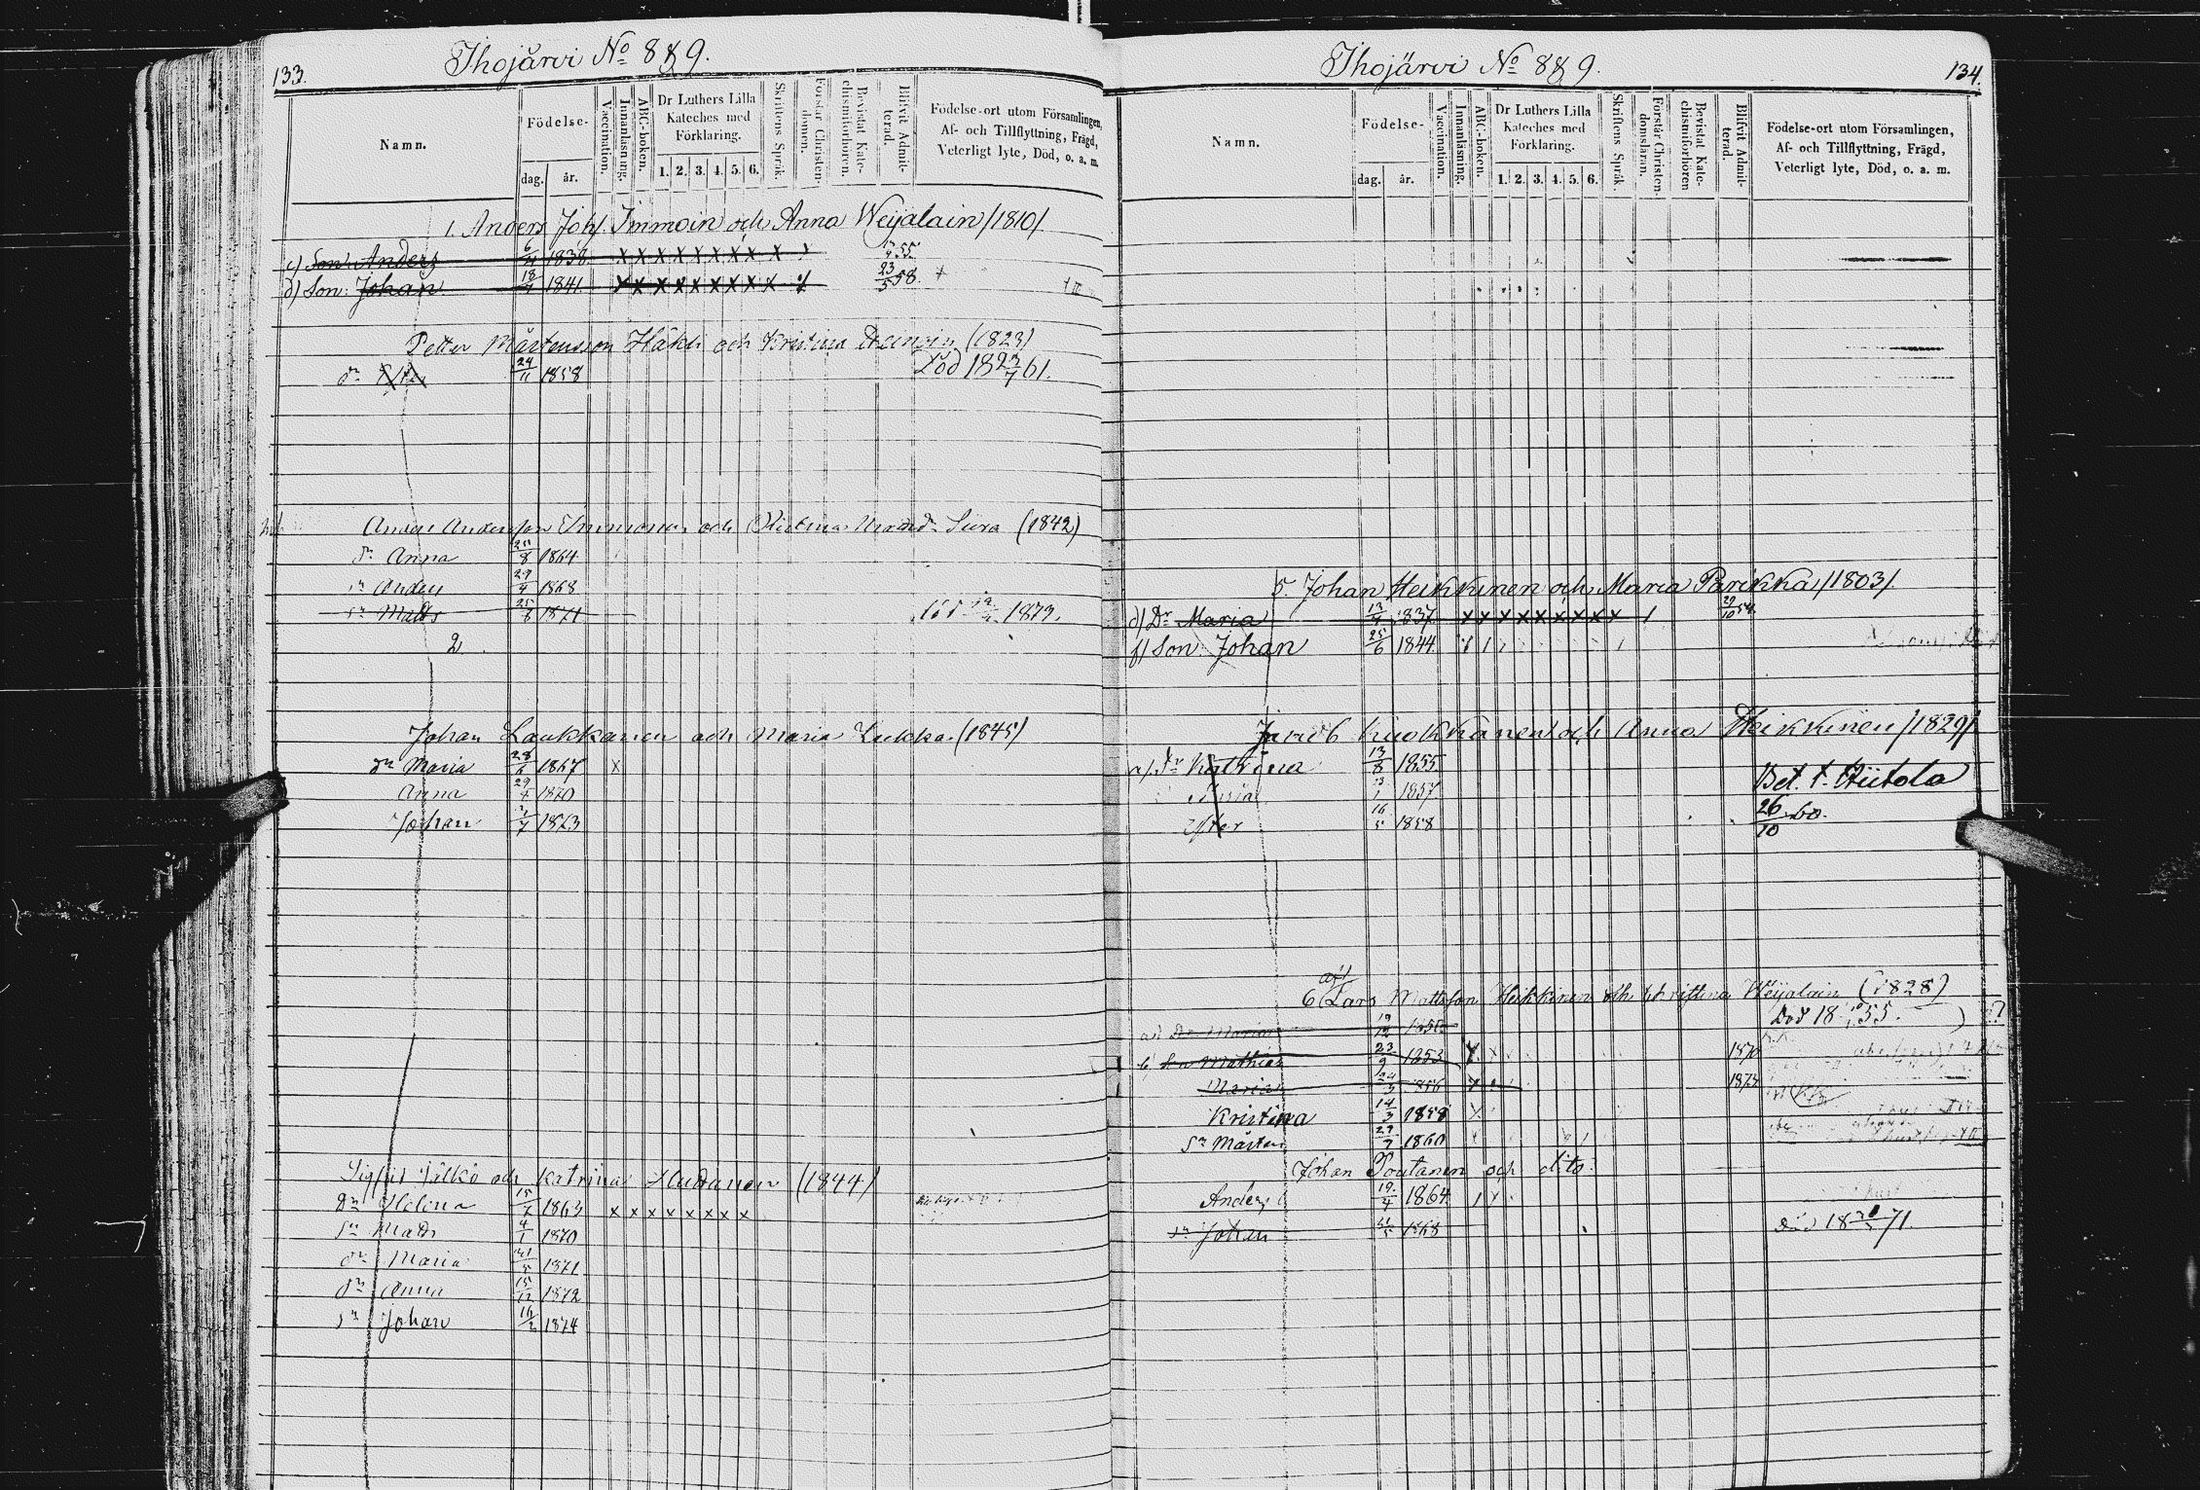 133.
Ihojärvi No 8 & 9.
Namn.
Födelse-
dag.
år.
Vaccination.
Innanläsning.
ABC-boken.
Dr Luthers Lilla
Kateches med
Förklaring.
1. 2. 3. 4. 5. 6.
Skriftens Språk.
Förstår Christen-
domen.
Bevistat Kate-
chismiförhören.
Blifvit Admit-
terad.
Födelse-ort utom Församlingen,
Af- och Tillflyttning, Frägd,
Veterligt lyte, Död, o. a. m.
1. Anders Joh. Immoin och Anna Weijalain /1810/
c) Son Anders 6/4 1838 x x x x x x x x x 55.
d) Son: Johan 18/7 1841 x x x x x x x x 23/5 58. +
Petter Mårtensson Häkli och Kristina (1823)
dr 24/11 1858 Död 18 2/7 61.
Anders Andersson Immonen och Kristina Sura (1842)
dr Anna 1864
sn Anders 29/4 1868
sn Matts 25/8 1871 1873.
2.
Johan Laukkanen och Maria Lukka (1845)
dr Maria 28/6 1867 x
Anna 29/4 1870
Johan 2/7 1873
Sigfrid Jälkö och Katrina Hudanen (1844)
Dr Helena 15/7 1863 x x x x x x x x
sn Matts 4/1 1870
dr Maria 21/5 1871
dr Anna 15/12 1872
sn Johan 16/2 1874
134.
Ihojärvi No 8 & 9.
Namn.
Födelse-
dag.
år.
Vaccination.
Innanläsning.
ABC-boken.
Dr Luthers Lilla
Kateches med
Förklaring.
1. 2. 3. 4. 5. 6.
Skriftens Språk.
Förstår Christen-
domsläran.
Bevistat Kate-
chismiförhören
Blifvit Admit-
terad.
Födelse-ort utom Församlingen,
Af- och Tillflyttning, Frägd,
Veterligt lyte, Död, o. a. m.
5. Johan Heikkinen och Maria Parikka /1803/.
d) Dr Maria 13/4 1837 x x x x x x x x x 29/10 54.
f) Son Johan 25/6 1844
Jacob Kuokkanen och Anna Heikkinen /1829/
a) Dr Katrina 13/8 1855
Maria 1857
Ester 16/5 1858
Bet. t. Hiitola
26/10 60.
6 Lars Mattsson Heikkinen och Kristina Weijalain (1828)
a) Dr Maria 19/12 1850 Död 18 55. ?
b) Son Mathias 23/9 1853 x 1870
Maria 1856 x 1873
Kristina 14/3 1858 x
sn Mårten 29/7 1860
Johan Poutanen och dito.
Anders 19/4 1864
sn Johan 1868 Död 18 71.